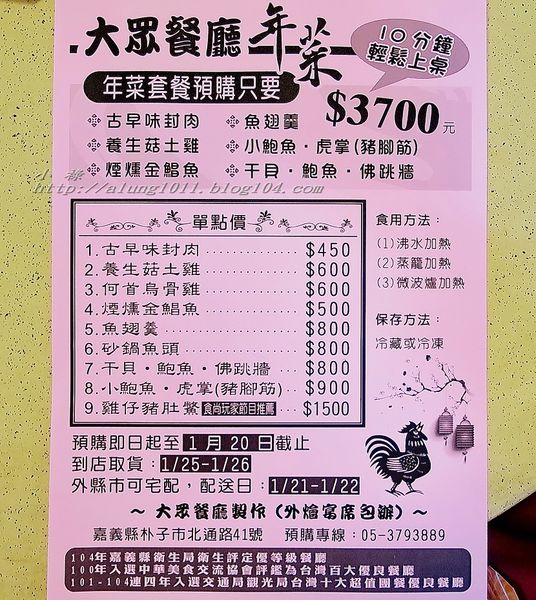 大眾餐廳年菜
10分鐘
輕鬆上桌
年菜套餐預購只要
$3700元
古早味封肉
魚翅羹
養生菇土雞
小鮑魚・虎掌(豬腳筋)
煙燻金鯧魚
干貝・鮑魚・佛跳牆
小祿
http://alung1011.blog104.com/
單點價
1.古早味封肉 $450
2.養生菇土雞 $600
3.何首烏骨雞 $600
4.煙燻金鯧魚 $500
5.魚翅羹 $800
6.砂鍋魚頭 $800
7.干貝・鮑魚・佛跳牆 $800
8.小鮑魚・虎掌(豬腳筋) $900
9.雞仔豬肚鱉 食尚玩家節目推薦 $1500
食用方法：
(1)沸水加熱
(2)蒸籠加熱
(3)微波爐加熱
保存方法：
冷藏或冷凍
預購即日起至1月20日截止
到店取貨：1/25-1/26
外縣市可宅配，配送日：1/21-1/22
～大眾餐廳製作(外燴宴席包辦)～
嘉義縣朴子市北通路41號 預購專線：05-3793889
104年嘉義縣衛生局衛生評定優等級餐廳
100年入選中華美食交流協會評鑑為台灣百大優良餐廳
101-104連四年入選交通局觀光局台灣十大超值團餐優良餐廳